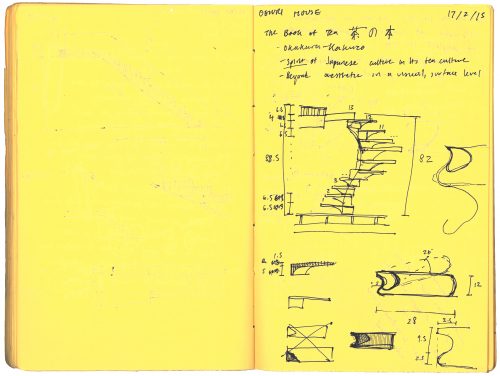 HOUSE 17/2/15
The Book of Tea 茶の本
- Okakura Kakuzo
- Spirit of Japanese culture in its tea culture
- Beyond aesthetic in a visual, surface level
13
12
11
82
88.5
2
6.5
6.5
1.5
20
12
28
2.5
9.5
2.5